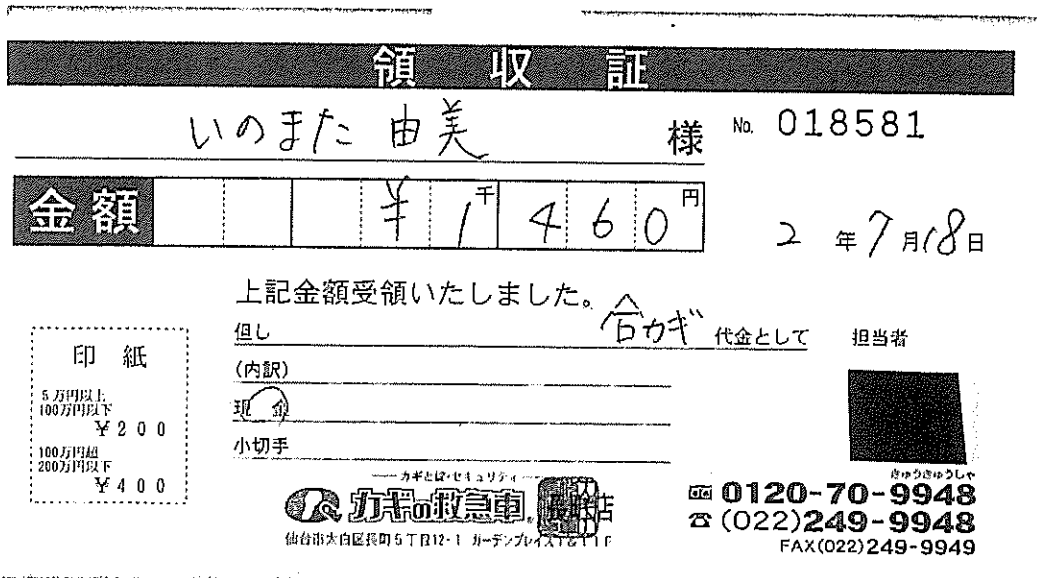 領収証
いのまた 由美 様 No. 018581
金額 ¥1千460円
2年7月18日
上記金額受領いたしました。
但し 合カギ 代金として 担当者
(内訳)
現金
小切手
印紙
5万円以上
100万円以下
¥200
100万円超
200万円以下
¥400
カギとは・セキュリティ
カギの救急車
店
仙台市太白区長町5丁目12-1
きゅうきゅうしゃ
0120-70-9948
(022)249-9948
FAX(022)249-9949